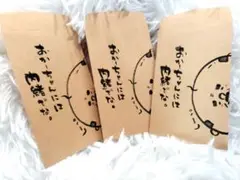 おかーちゃんには
内緒やな。
おかーちゃんには
内緒やな。
おかーちゃんには
内緒やな。